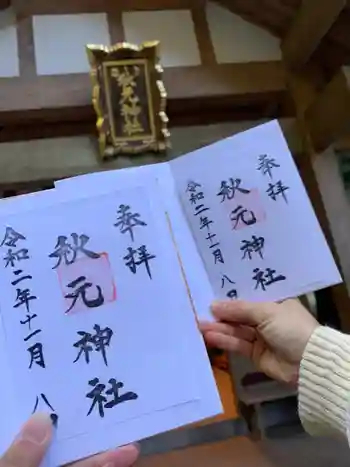 秋元神社
奉拝
秋元神社
令和二年十一月八日
奉拝
秋元神社
令和二年十一月八